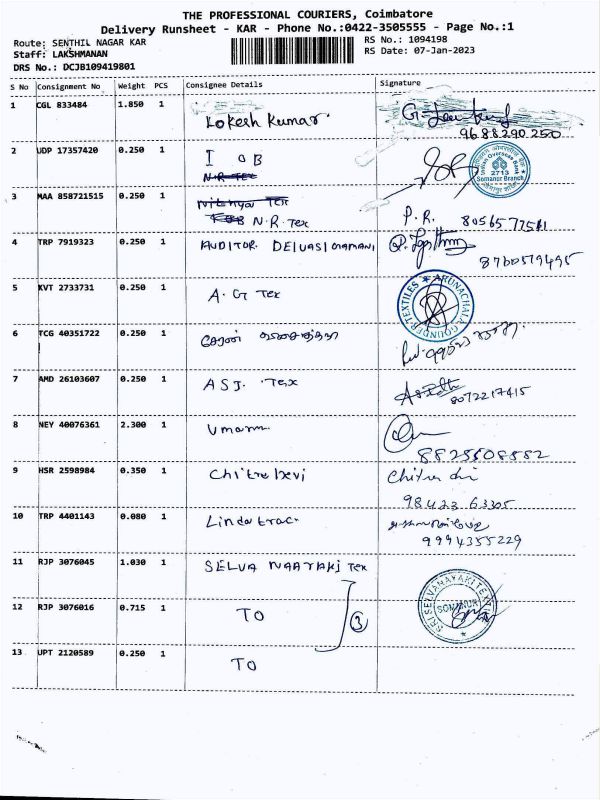 THE PROFESSIONAL COURIERS, Coimbatore
Delivery Runsheet - KAR - Phone No.:0422-3505555 - Page No.:1
Route: SENTHIL NAGAR KAR
RS No.: 1094198
Staff: LAKSHMANAN
RS Date: 07-Jan-2023
DRS No.: DCJB109419801
S No Consignment No Weight PCS Consignee Details Signature
1 CGL 833484 1.850 1 Lokesh Kumar
9688290250
2 UDP 17357420 0.250 1 I O B
N.R TEX
Indian Overseas Bank
2713
Somanur Branch
3 MAA 858721515 0.250 1 Nithya Tex
N.R. Tex P.R. 8056577511
4 TRP 7919323 0.250 1 AUDITOR. DEIVASIGAMANI
8760579495
5 KVT 2733731 0.250 1 A. G Tex
ARUNACHALA GOUNDER TEXTILES
6 TCG 40351722 0.250 1
7 AMD 26103607 0.250 1 ASJ. Tex
8072217415
8 NEY 40076361 2.300 1 Umamm
8825608582
9 HSR 2598984 0.350 1 Chitra Devi Chitra
98423 63305
10 TRP 4401143 0.080 1
9994355229
11 RJP 3076045 1.030 1 SELVA NAAYAKI Tex
SRI SELVANAYAKI TEX
SOMANUR
12 RJP 3076016 0.715 1 TO 3
13 UPT 2120589 0.250 1 TO